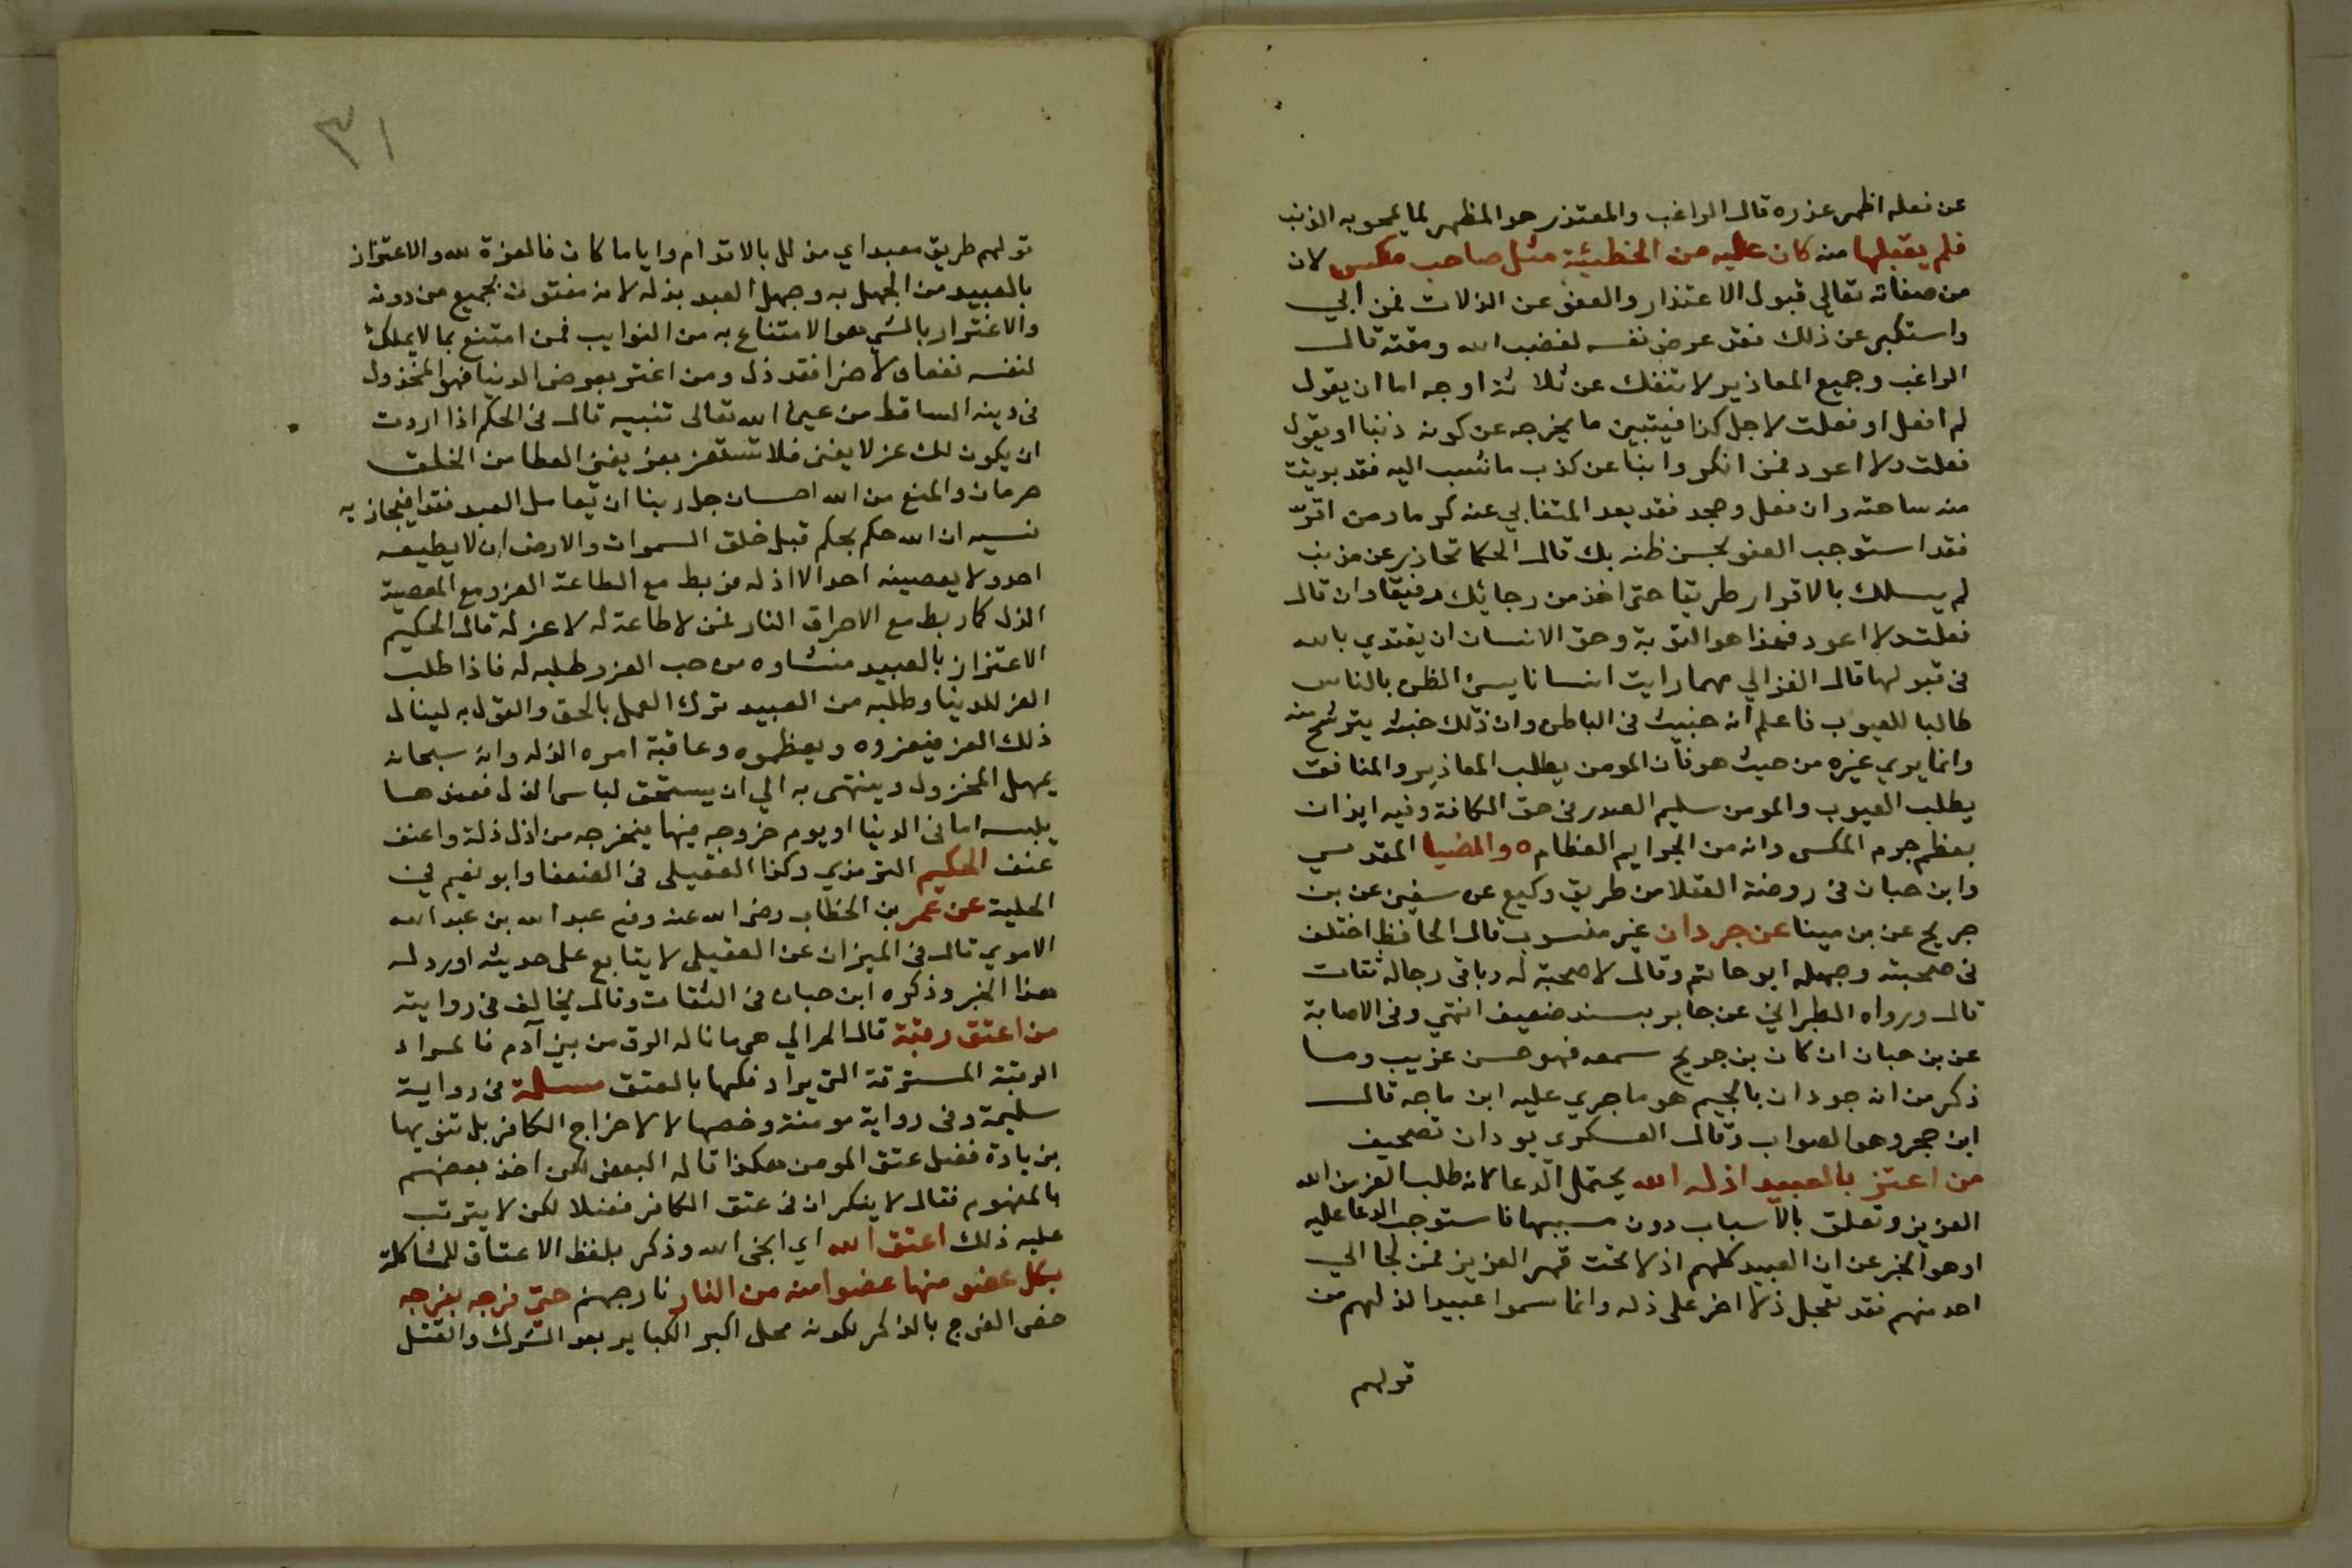 عن فعله اظهر عذره قال الراغب والمعتذر هو المظهر لما يمحو به الذنب
فلم يقبلها منه كان عليه من الخطيئة مثل صاحب مكس لان
من صفاته تعالى قبول الاعتذار والعفو عن الزلات فمن ابي
واستكبر عن ذلك فقد عرض نفسه لغضب الله ومقته قال
الراغب وجميع المعاذير لا تنفك عن ثلاثة اوجه اما ان يقول
لم افعل او فعلت لاجل كذا فيتبين ما يخرجه عن كونه ذنبا او يقول
فعلت ولا اعود فمن انكر وابنا عن كذب ما نسب اليه فقد بريت
منه ساحته وان فعل وجحد فقد يعد المتغابي عنه كرما ومن اقر
فقد استوجب العفو لحسن ظنه بك قال الحكما تحاذير عن مذنب
لم يسلك بالاقرار طريقا حتى اخذ من رجائك رفيقا وان قال
فعلت ولا اعود فهذا هو التوبة وحق الانسان ان يقتدي بالله
في قبولها قال الغزالي مهما رايت انسانا يسئ الظن بالناس
طالبا للعيوب فاعلم انه خبيث في الباطن وان ذلك خبث يترشح منه
وانما يري غيره من حيث هو فان المومن يطلب المعاذير والمنافق
يطلب العيوب والمومن سليم الصدر في حق الكافة وفيه ايذان
بعظم جرم المكس وانه من الجرايم العظام ه والضيا المقدسي
وابن حبان في روضة العقلا من طريق وكيع عن سفين عن بن
جريج عن بن مينا عن جردان غير منسوب قال الحافظ اختلف
في صحبته وجهله ابو حاتم وقال لا صحبة له وباقي رجاله ثقات
قال ورواه الطبراني عن جابر بسند ضعيف انتهي وفي الاصابة
عن بن حبان ان كان بن جريج سمعه فهو حسن غريب وما
ذكر من انه جودان بالجيم هو ما جري عليه ابن ماجه قال
ابن حجر وهو الصواب وقال العسكري بودان تصحيف
من اعتز بالعبيد اذله الله يحتمل الدعا لانه طلب العز من الله
العزيز وتعلق بالاسباب دون مسببها فاستوجب الدعا عليه
او هو الخبر عن ان العبيد كلهم اذلا تحت قهر العزيز فمن لجا الي
احد منهم فقد تعجل ذلا اخر على ذله وانما سموا عبيدا لذلهم من
قولهم
٣١
قولهم طريق معبد اي مذلل بالاقدام وايا ما كان فالعزة لله والاعتزاز
بالعبيد من الجهل به وجهل العبد بذله لانه مفتون بجميع من دونه
والاغترار بالشي هو الامتناع به من النوايب فمن امتنع بما لا يملك
لنفسه نفعا ولا ضرا فقد ذل ومن اغتر بعرض الدنيا فهو المخذول
في دينه الساقط من عين الله تعالى تنبيه قال في الحكم اذا اردت
ان يكون لك عز لا يفنى فلا تستعز بعز يفنى العطا من الخلق
حرمان والمنع من الله احسان جل ربنا ان يعامل العبد نقدا فيجازيه
نسيه ان الله حكم بحكم قبل خلق السموات والارض ان لا يطيعه
احد ولا يعصينه احد الا اذله فربط مع الطاعة العز ومع المعصية
الذل كما ربط مع الاحراق النار فمن لا طاعة له لا عز له قال الحكيم
الاعتزاز بالعبيد منشاوه من حب العز وطلبه له فاذا طلب
العز للدنيا وطلبه من العبيد ترك العمل بالحق والقول به لينال
ذلك العز فيعزوه ويعظموه وعاقبة امره الذلة وانه سبحانه
يمهل المخزول وينتهى به الي ان يستحق لباس الذل فعندها
يلبسه اما في الدنيا او يوم خروجه منها فيخرجه من اذل ذلة واعنف
عنف الحكيم الترمذي وكذا العقيلى في الضعفا وابو نعيم في
الحلية عن عمر بن الخطاب رضي الله عنه وفيه عبد الله بن عبد الله
الاموي قال في الميزان عن العقيلى لا يتابع على حديثه اورد له
هذا الخبر وذكره ابن حبان في الثقات وقال يخالف في روايته
من اعتق رقبة قال الحرالي هي ما ناله الرق من بني آدم فالمراد
الرقبة المسترقة التي يراد فكها بالعتق مسلمة في رواية
سليمة وفي رواية مومنة وخصها لا لاخراج الكافر بل تنويها
بزيادة فضل عتق المومن هكذا قاله البعض لكن اخذ بعضهم
بالمفهوم فقال لا ينكر ان في عتق الكافر فضلا لكن لا يترتب
عليه ذلك اعتق الله اي انجى الله وذكر بلفظ الاعتاق للمشاكلة
بكل عضو منها عضوا منه من النار نار جهنم حتى فرجه بفرجه
خص الفرج بالذكر لكونه محل اكبر الكباير بعد الشرك والقتل